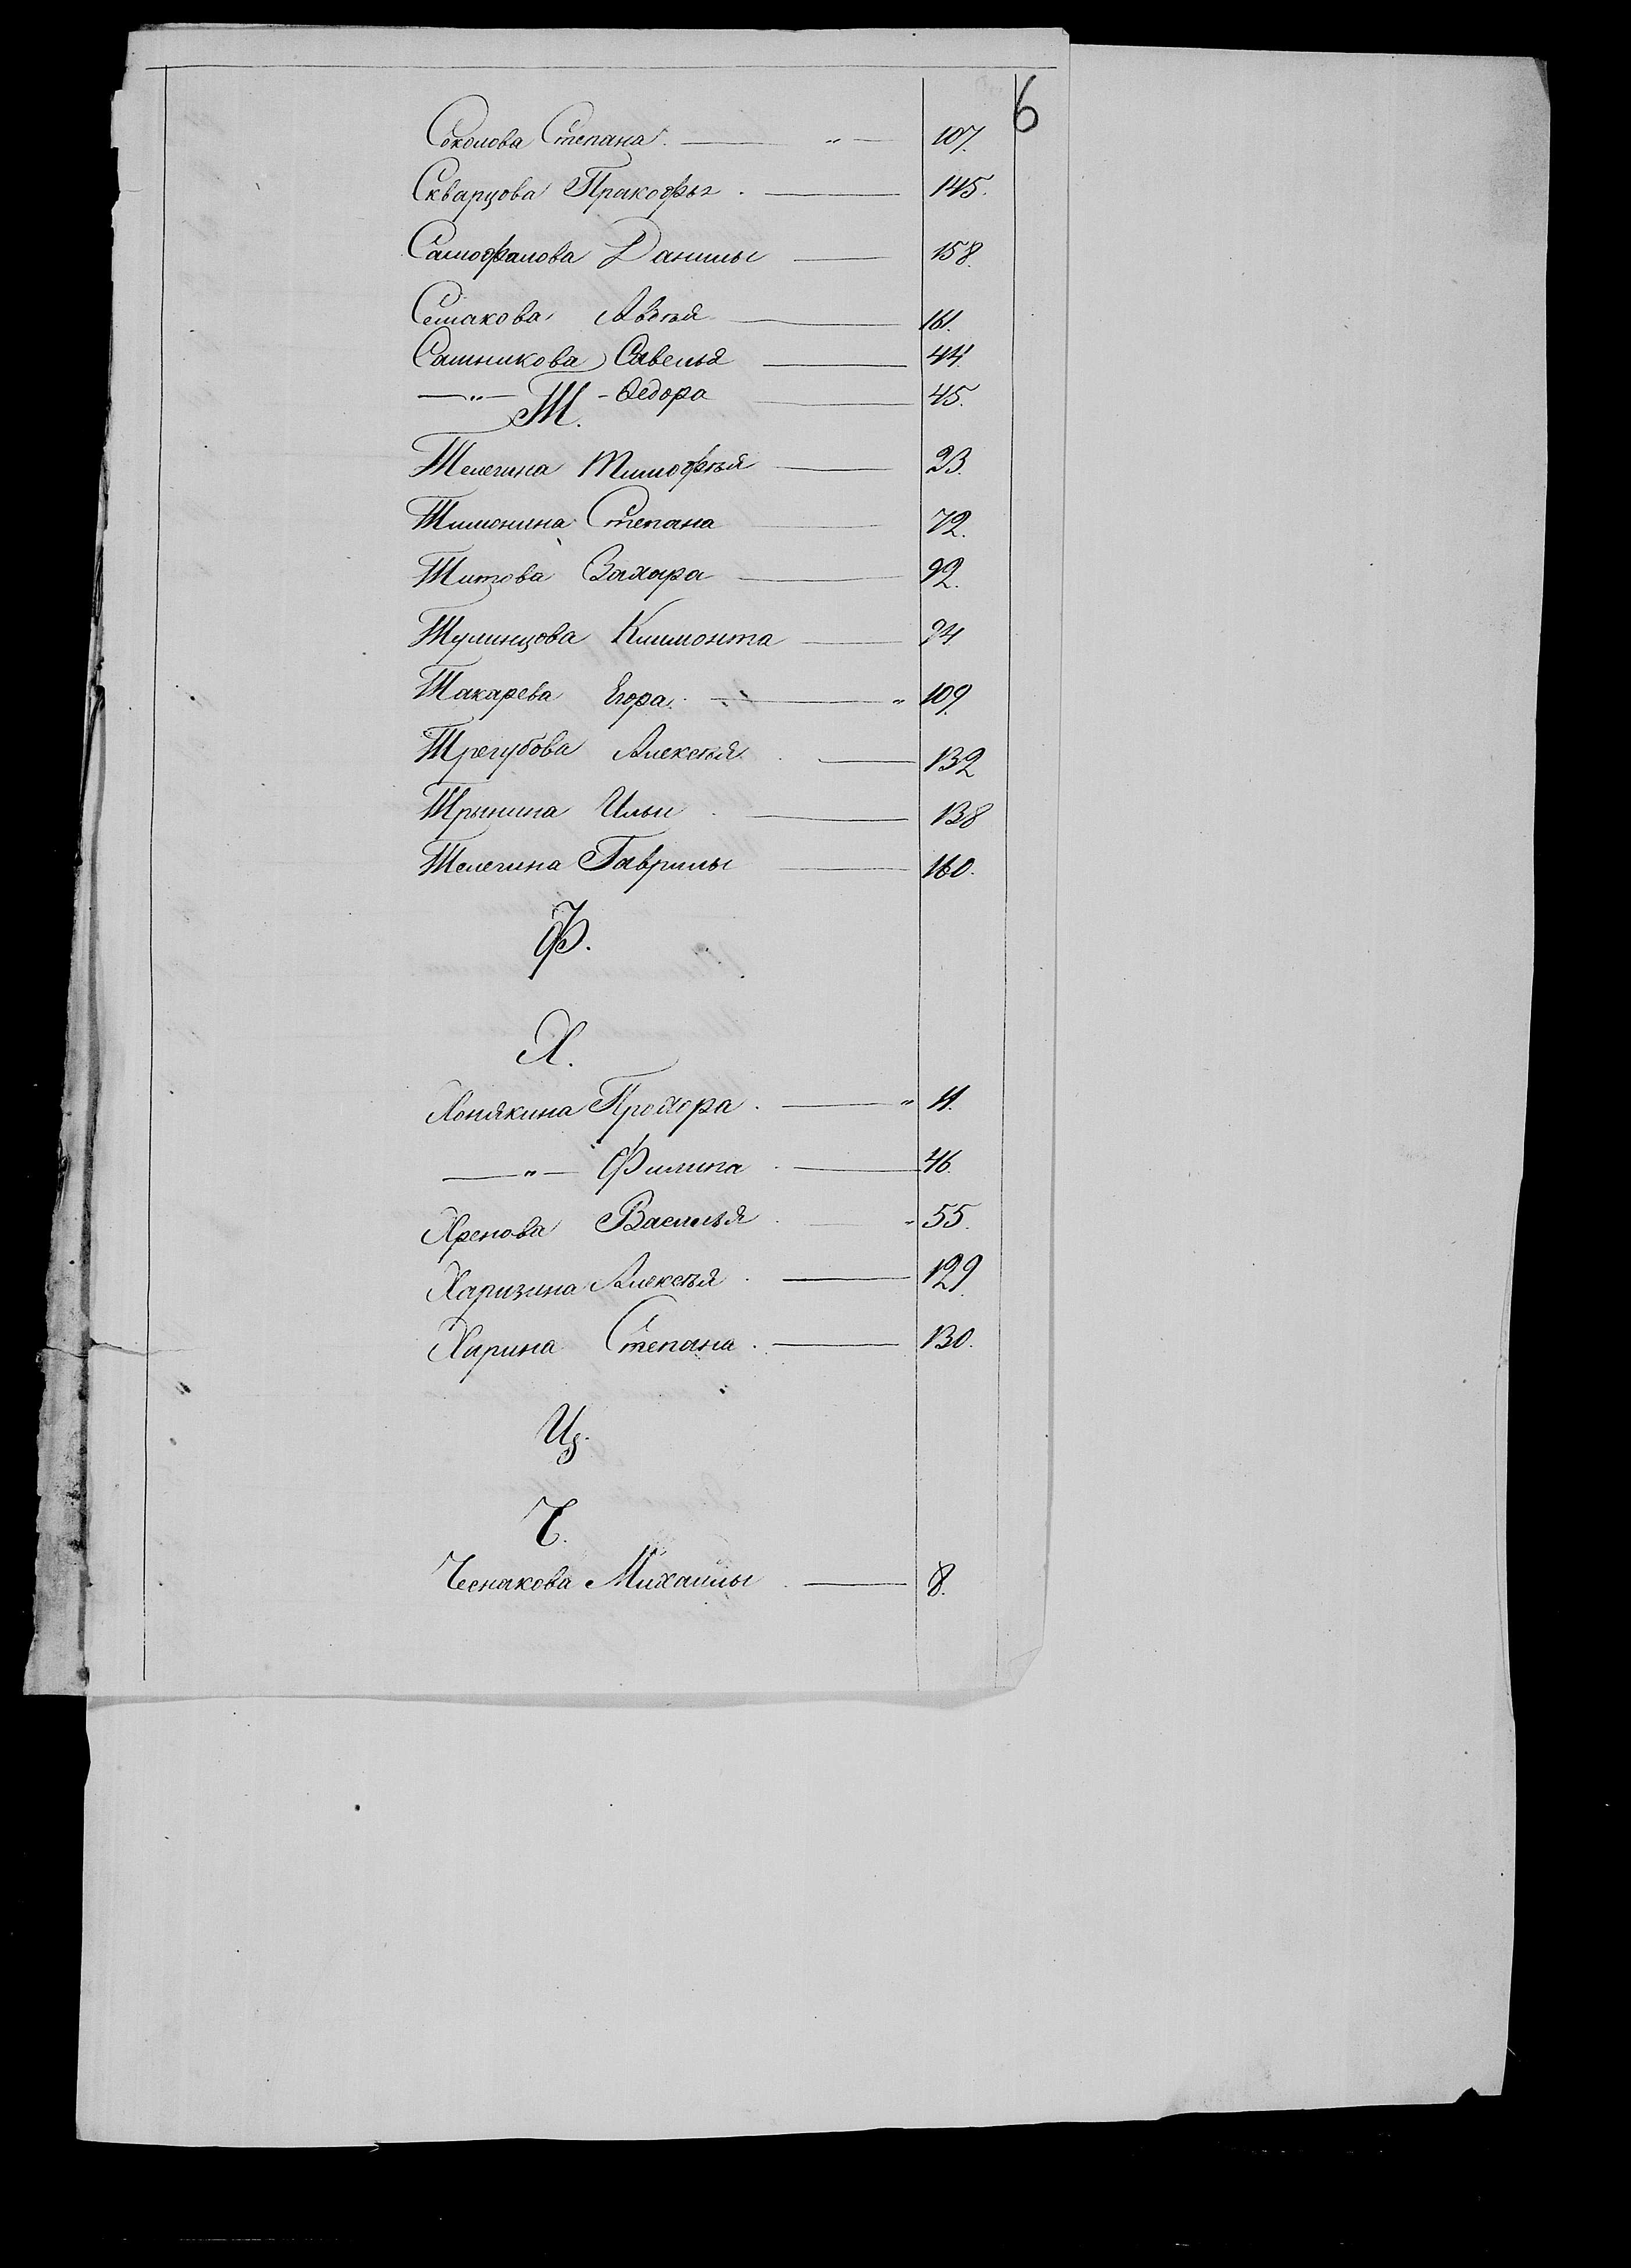 6
Соколова Степана. — " — 107.
Скварцова Пракофья. — 145.
Самофалова Данилы — 158.
Семакова — 161.
Сашникова Савелья — 44.
— " — Ѳедора — 45.
Т.
Телегина Тимофѣя — 23.
Тимонина Степана — 72.
Титова Захара — 92.
Тулинцова Климонта — 94.
Такарева Егора. — " 109.
Трегубова Алексѣя. — 132
Трынина Ильи. — 138
Телегина Гаврилы — 160.
Ф.
Х.
Хонякина Прохора. — " 11.
— " — Филипа. — 46.
Хренова Василья. — " 55.
Харизина Алексѣя. — 129.
Харина Степана. — 130.
Ц.
Ч.
Чеснакова Михаилы. — 8.